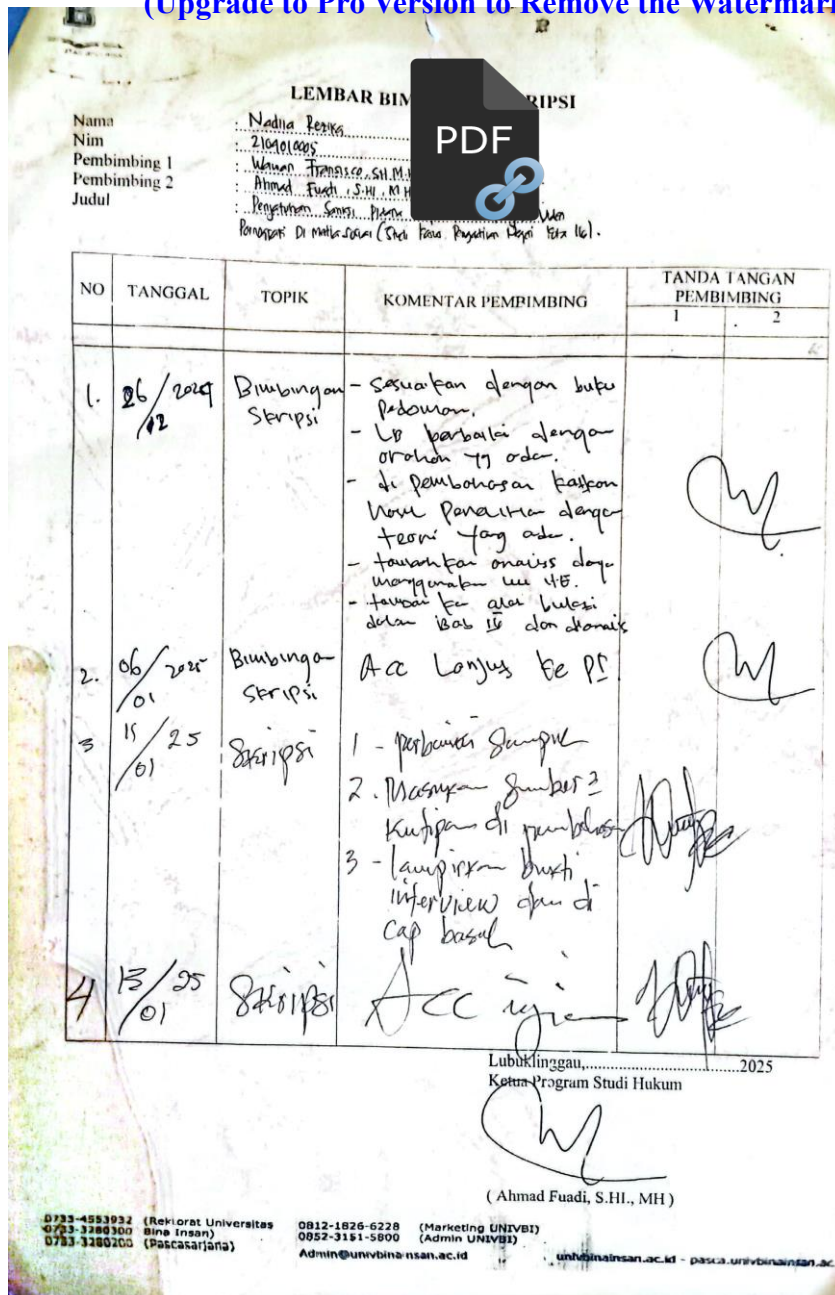 (Upgrade to Pro Version to Remove the Watermark
LEMBAR BIM RIPSI
PDF
Nama : Nadila Rezika
Nim : 2104010005
Pembimbing 1 : Wawan Fransisco, SH.M.H
Pembimbing 2 : Ahmad Fuadi, S.HI, MH
Judul : Pengaturan Sanksi Pidana
Pornografi Di Media Sosial (Studi Kasus Pengadilan Negeri
NO TANGGAL TOPIK KOMENTAR PEMBIMBING TANDA TANGAN PEMBIMBING
1 2
1. 26/12 2024 Bimbingan Skripsi - Sesuaikan dengan buku
Pedoman.
- LB perbaiki dengan
arahan yg ada.
- di pembahasan kaitkan
hasil Penelitian dengan
teori yang ada.
- tambahkan analisis
menggunakan uu ITE.
dalam Bab IV dan
2. 06/01 2025 Bimbingan Skripsi Acc Lanjut ke PI
3 11/01 25 Skripsi 1 - perbaiki Sampul
2. Masukan Sumber2
Kutipan di pembahasan
3 - lampirkan bukti
interview dan di
cap basah
4 13/01 25 Skripsi Acc ujian
Lubuklinggau,..............................2025
Ketua Program Studi Hukum
( Ahmad Fuadi, S.HI., MH )
0733-4553932 (Rektorat Universitas
0733-3280300 Bina Insan)
0733-3280200 (Pascasarjana)
0812-1826-6228 (Marketing UNIVBI)
0852-3151-5800 (Admin UNIVBI)
Admin@univbinainsan.ac.id
univbinainsan.ac.id - pasca.univbinainsan.ac.